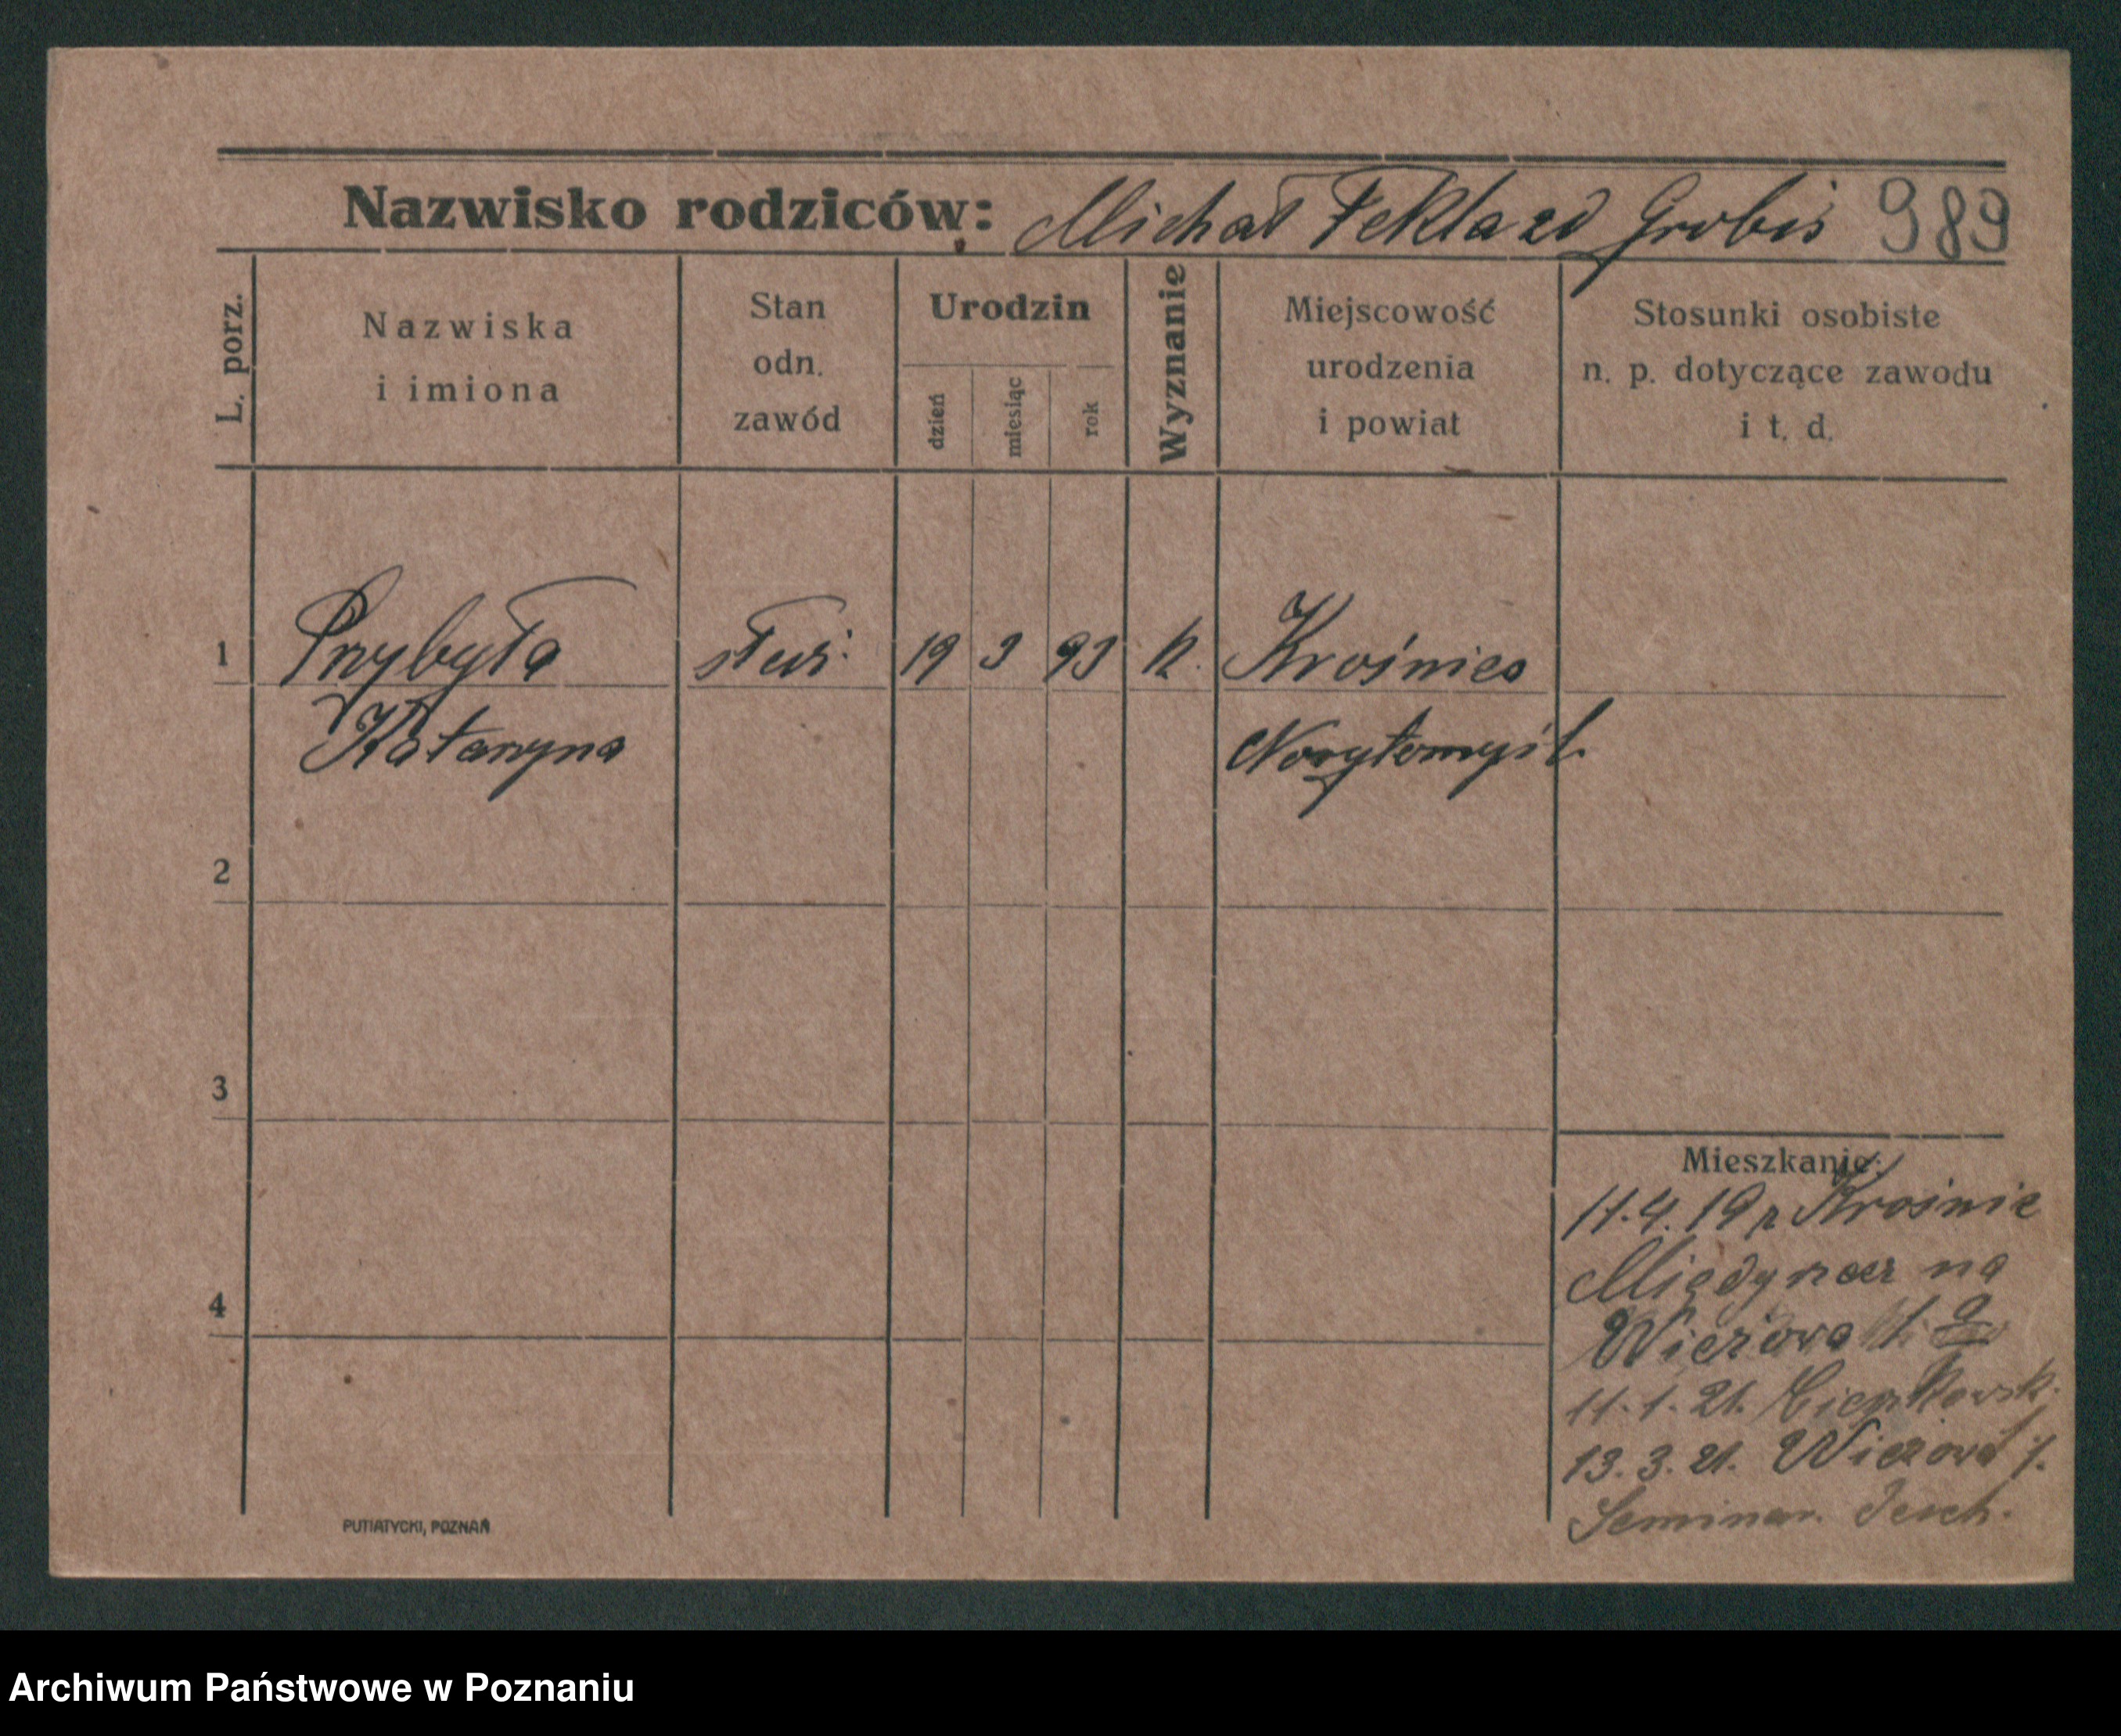 Nazwisko rodziców: Michał Tekla zd Grobis 989
L. porz.
Nazwiska i imiona
Stan odn. zawód
Urodzin
dzień
miesiąc
rok
Wyznanie
Miejscowość urodzenia i powiat
Stosunki osobiste n. p. dotyczące zawodu i t. d.
1 Przybyła służ. 19 3 93 k. Krośnico
Katarzyna Nowytomyśl.
2
3
4
Mieszkanie:
11.4.19 z Krośnic
na
Wieżowa
11.1.21.
13.3.21. Wieżowa
Seminar.
PUTIATYCKI, POZNAŃ
Archiwum Państwowe w Poznaniu